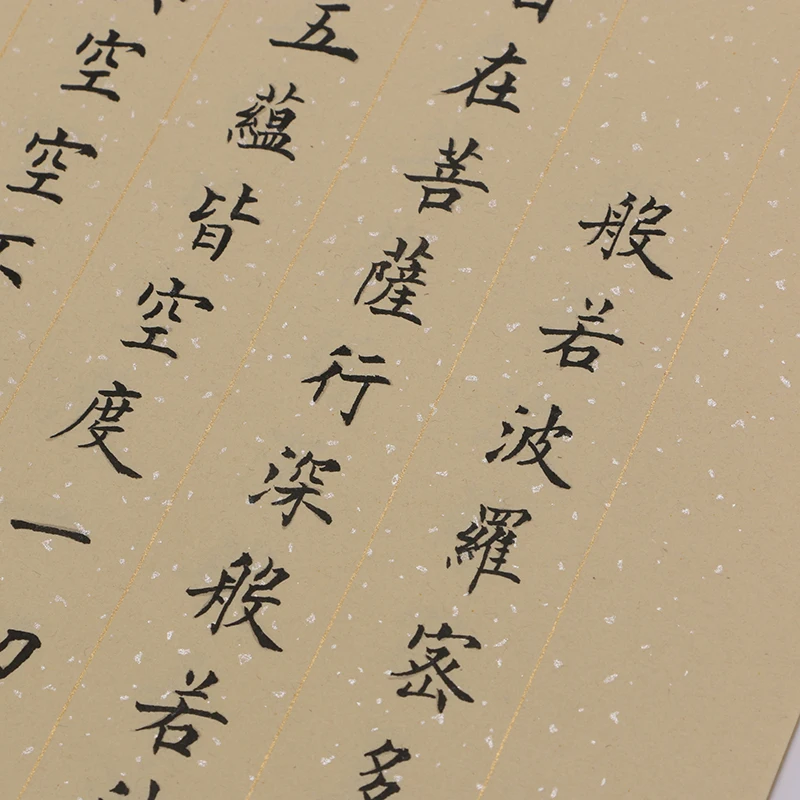 般若波羅密多
在菩薩行深般若
五蘊皆空度一
空空不